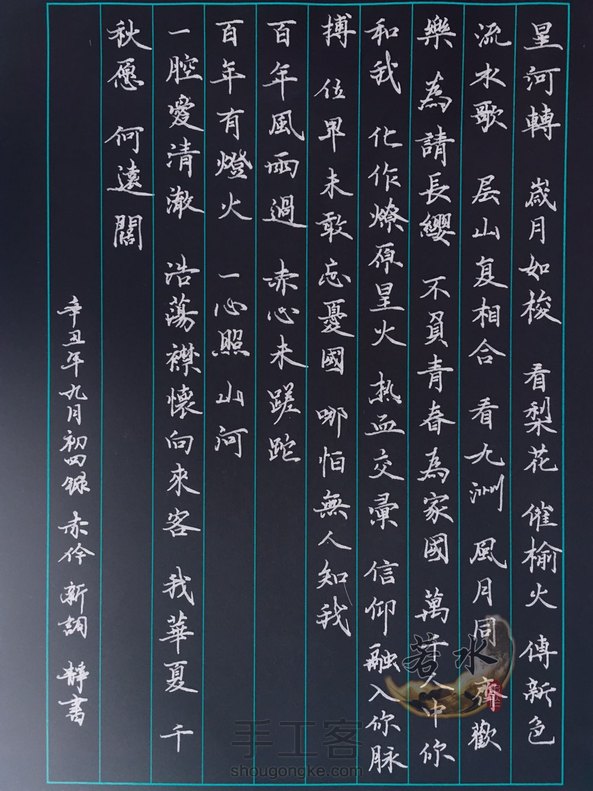 星河轉 歲月如梭 看梨花 催榆火 傳新色
流水歌 层山复相合 看九洲 風月同 齊歡
樂 為請長纓 不負青春為家國 萬千人中你
和我 化作燎原星火 热血交彙 信仰融入你脉
搏 位卑未敢忘憂國 哪怕無人知我
百年風雨過 赤心未蹉跎
百年有燈火 一心照山河
一腔愛清澈 浩蕩襟懷向來客 我華夏 千
秋愿 何遠闊
辛丑年九月初四錄 赤伶 新詞 靜書
若水
手工客
shougongke.com